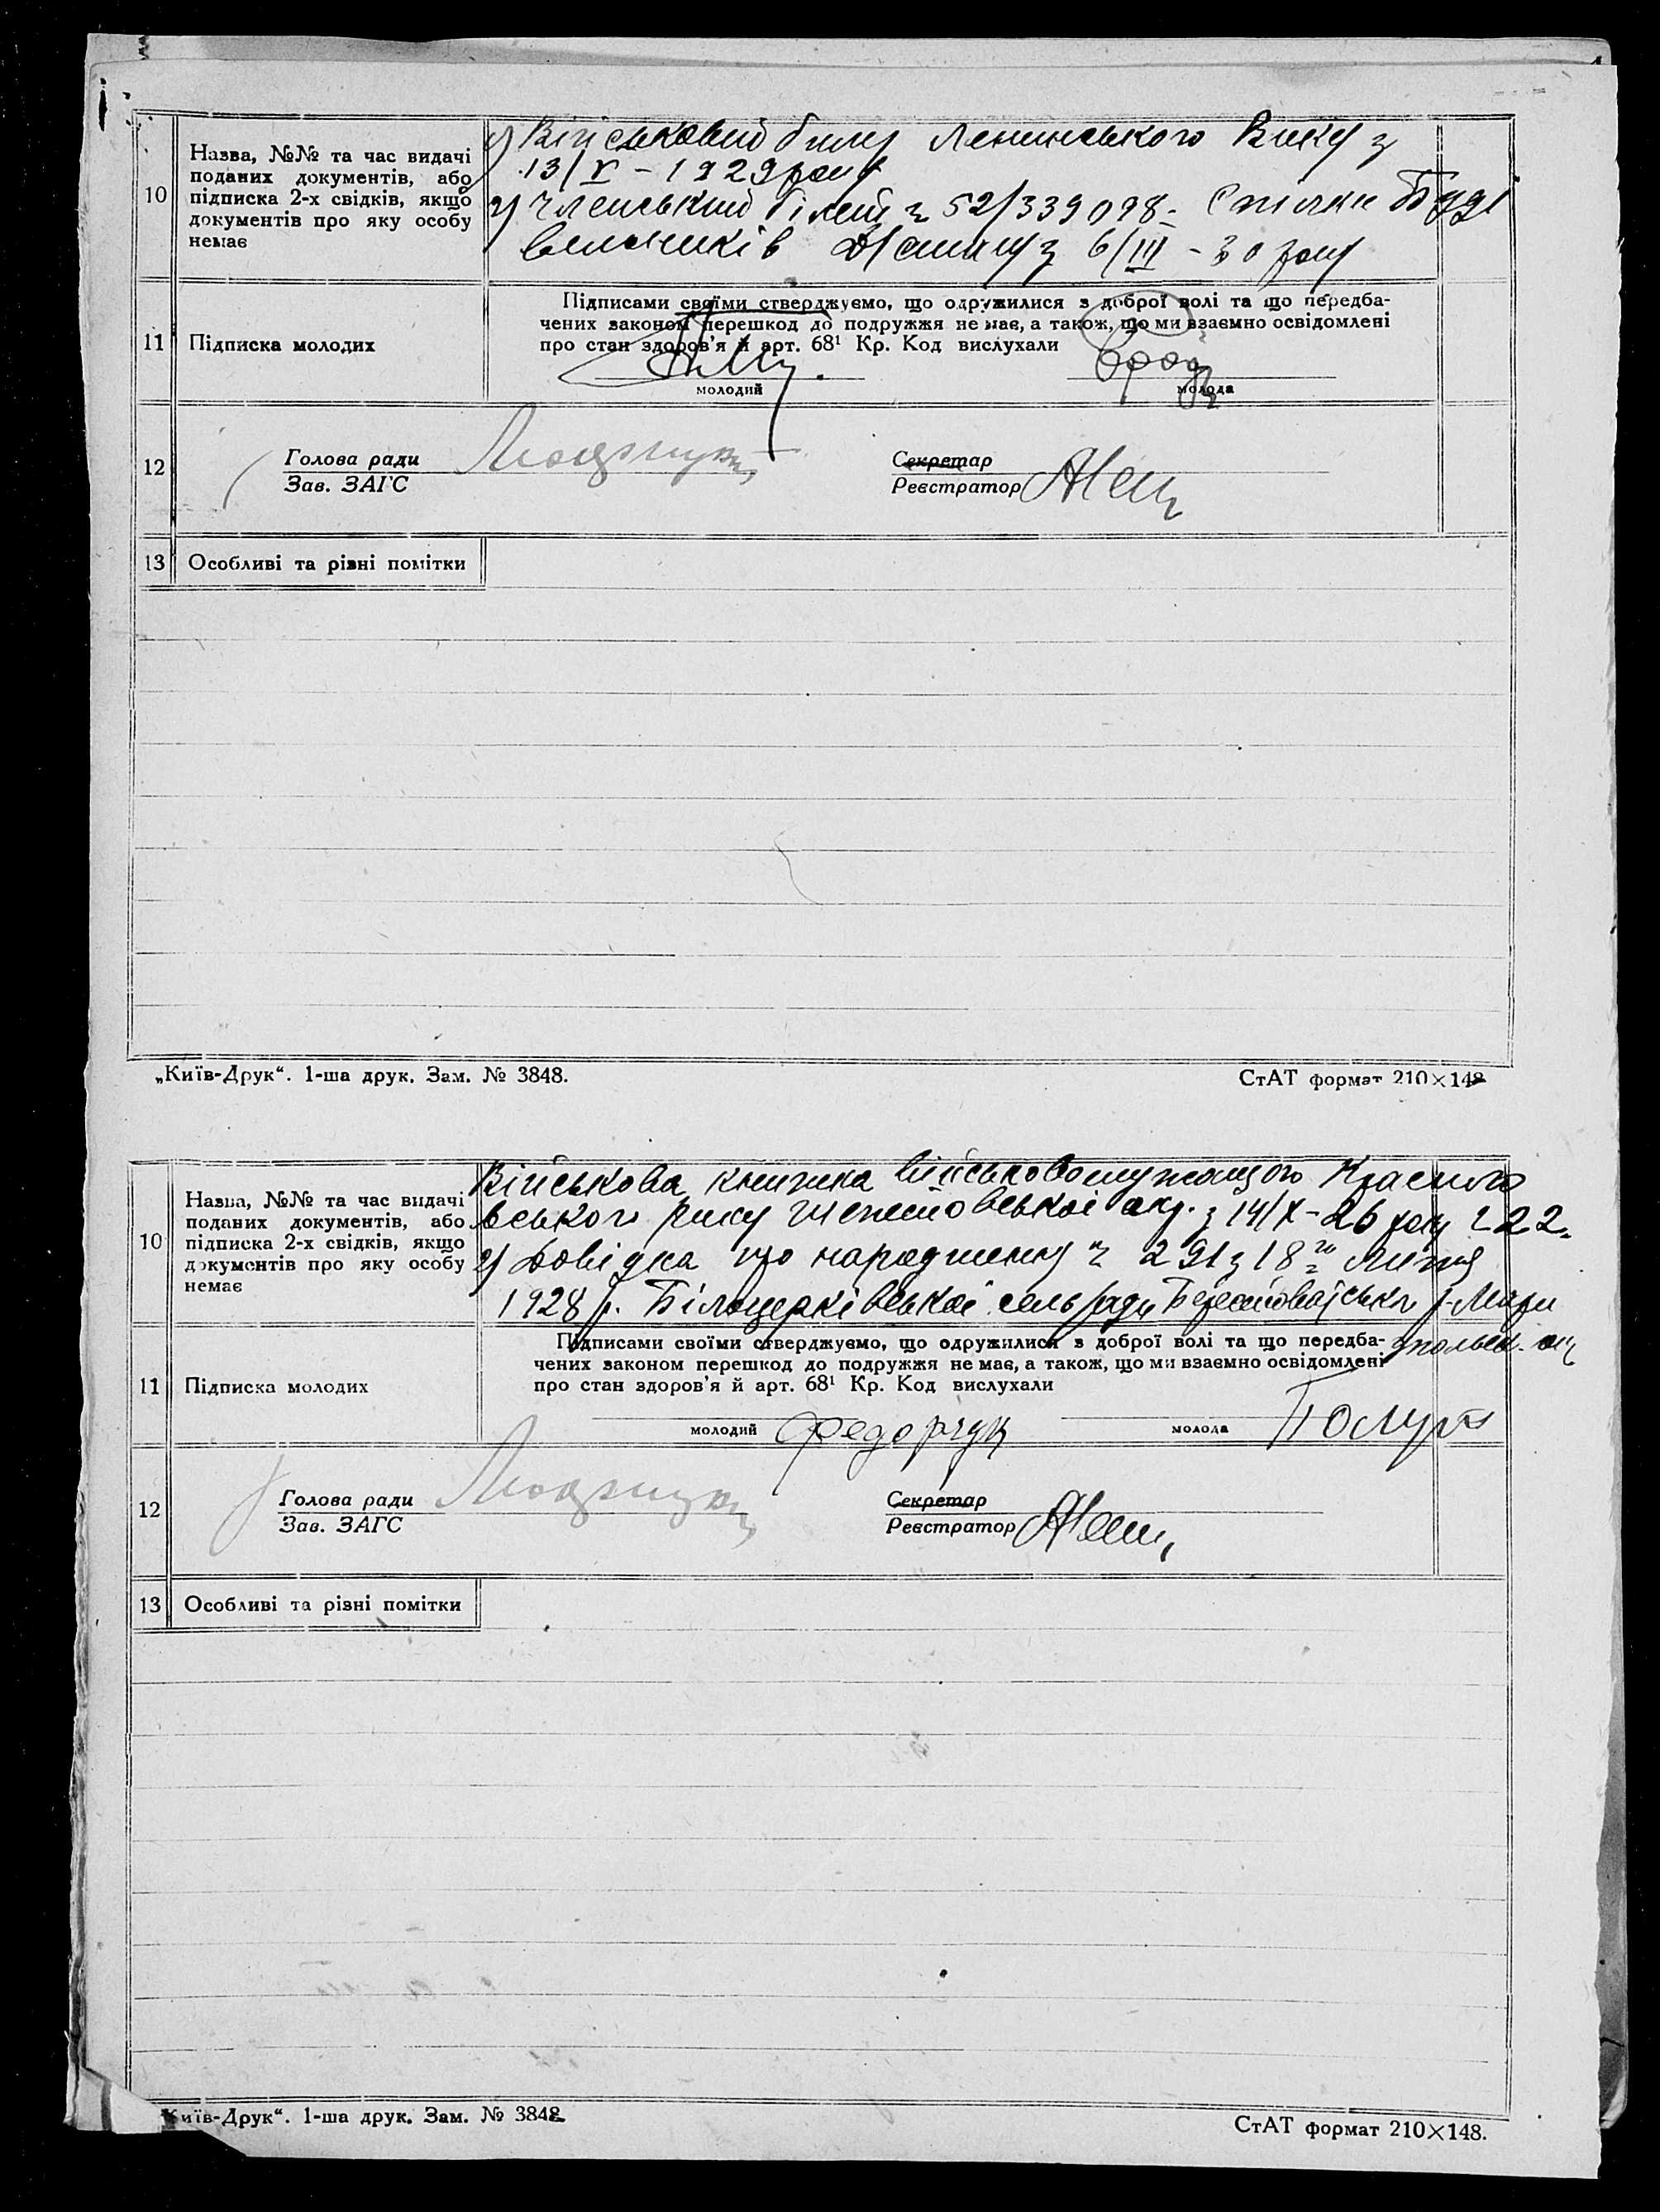 10
Назва, №№ та час видачі
поданих документів, або
підписка 2-х свідків, якщо
документів про яку особу
немає
1) Військовий білет Ленинського Вику з
13/V – 1929 року
2) Членський білет № 52/339098 – Спілки Буді
вельників 6/III – 30 року
11
Підписка молодих
Підписами своїми стверджуємо, що одружилися з доброї волі та що передба-
чених законом перешкод до подружжя не має, а також, що ми взаємно освідомлені
про стан здоров'я й арт. 68¹ Кр. Код вислухали
молодий
молода
12
Голова ради
Зав. ЗАГС
Секретар
Реєстратор
13
Особливі та різні помітки
„Київ-Друк“. 1-ша друк. Зам. № 3848.
СтАТ формат 210×148
10
Назва, №№ та час видачі
поданих документів, або
підписка 2-х свідків, якщо
документів про яку особу
немає
Військова книжка військовослужащого Красило
вського рику Шепетовської окр. з 14/X – 26 року № 22.
2) Довідка про народження № 291 з 18го Липня
1928 р. Білоцерківської сельради
11
Підписка молодих
Підписами своїми стверджуємо, що одружилися з доброї волі та що передба-
чених законом перешкод до подружжя не має, а також, що ми взаємно освідомлені
про стан здоров'я й арт. 68¹ Кр. Код вислухали
молодий Федорчук
молода
12
Голова ради
Зав. ЗАГС
Секретар
Реєстратор
13
Особливі та різні помітки
Київ-Друк“. 1-ша друк. Зам. № 3848
СтАТ формат 210×148.